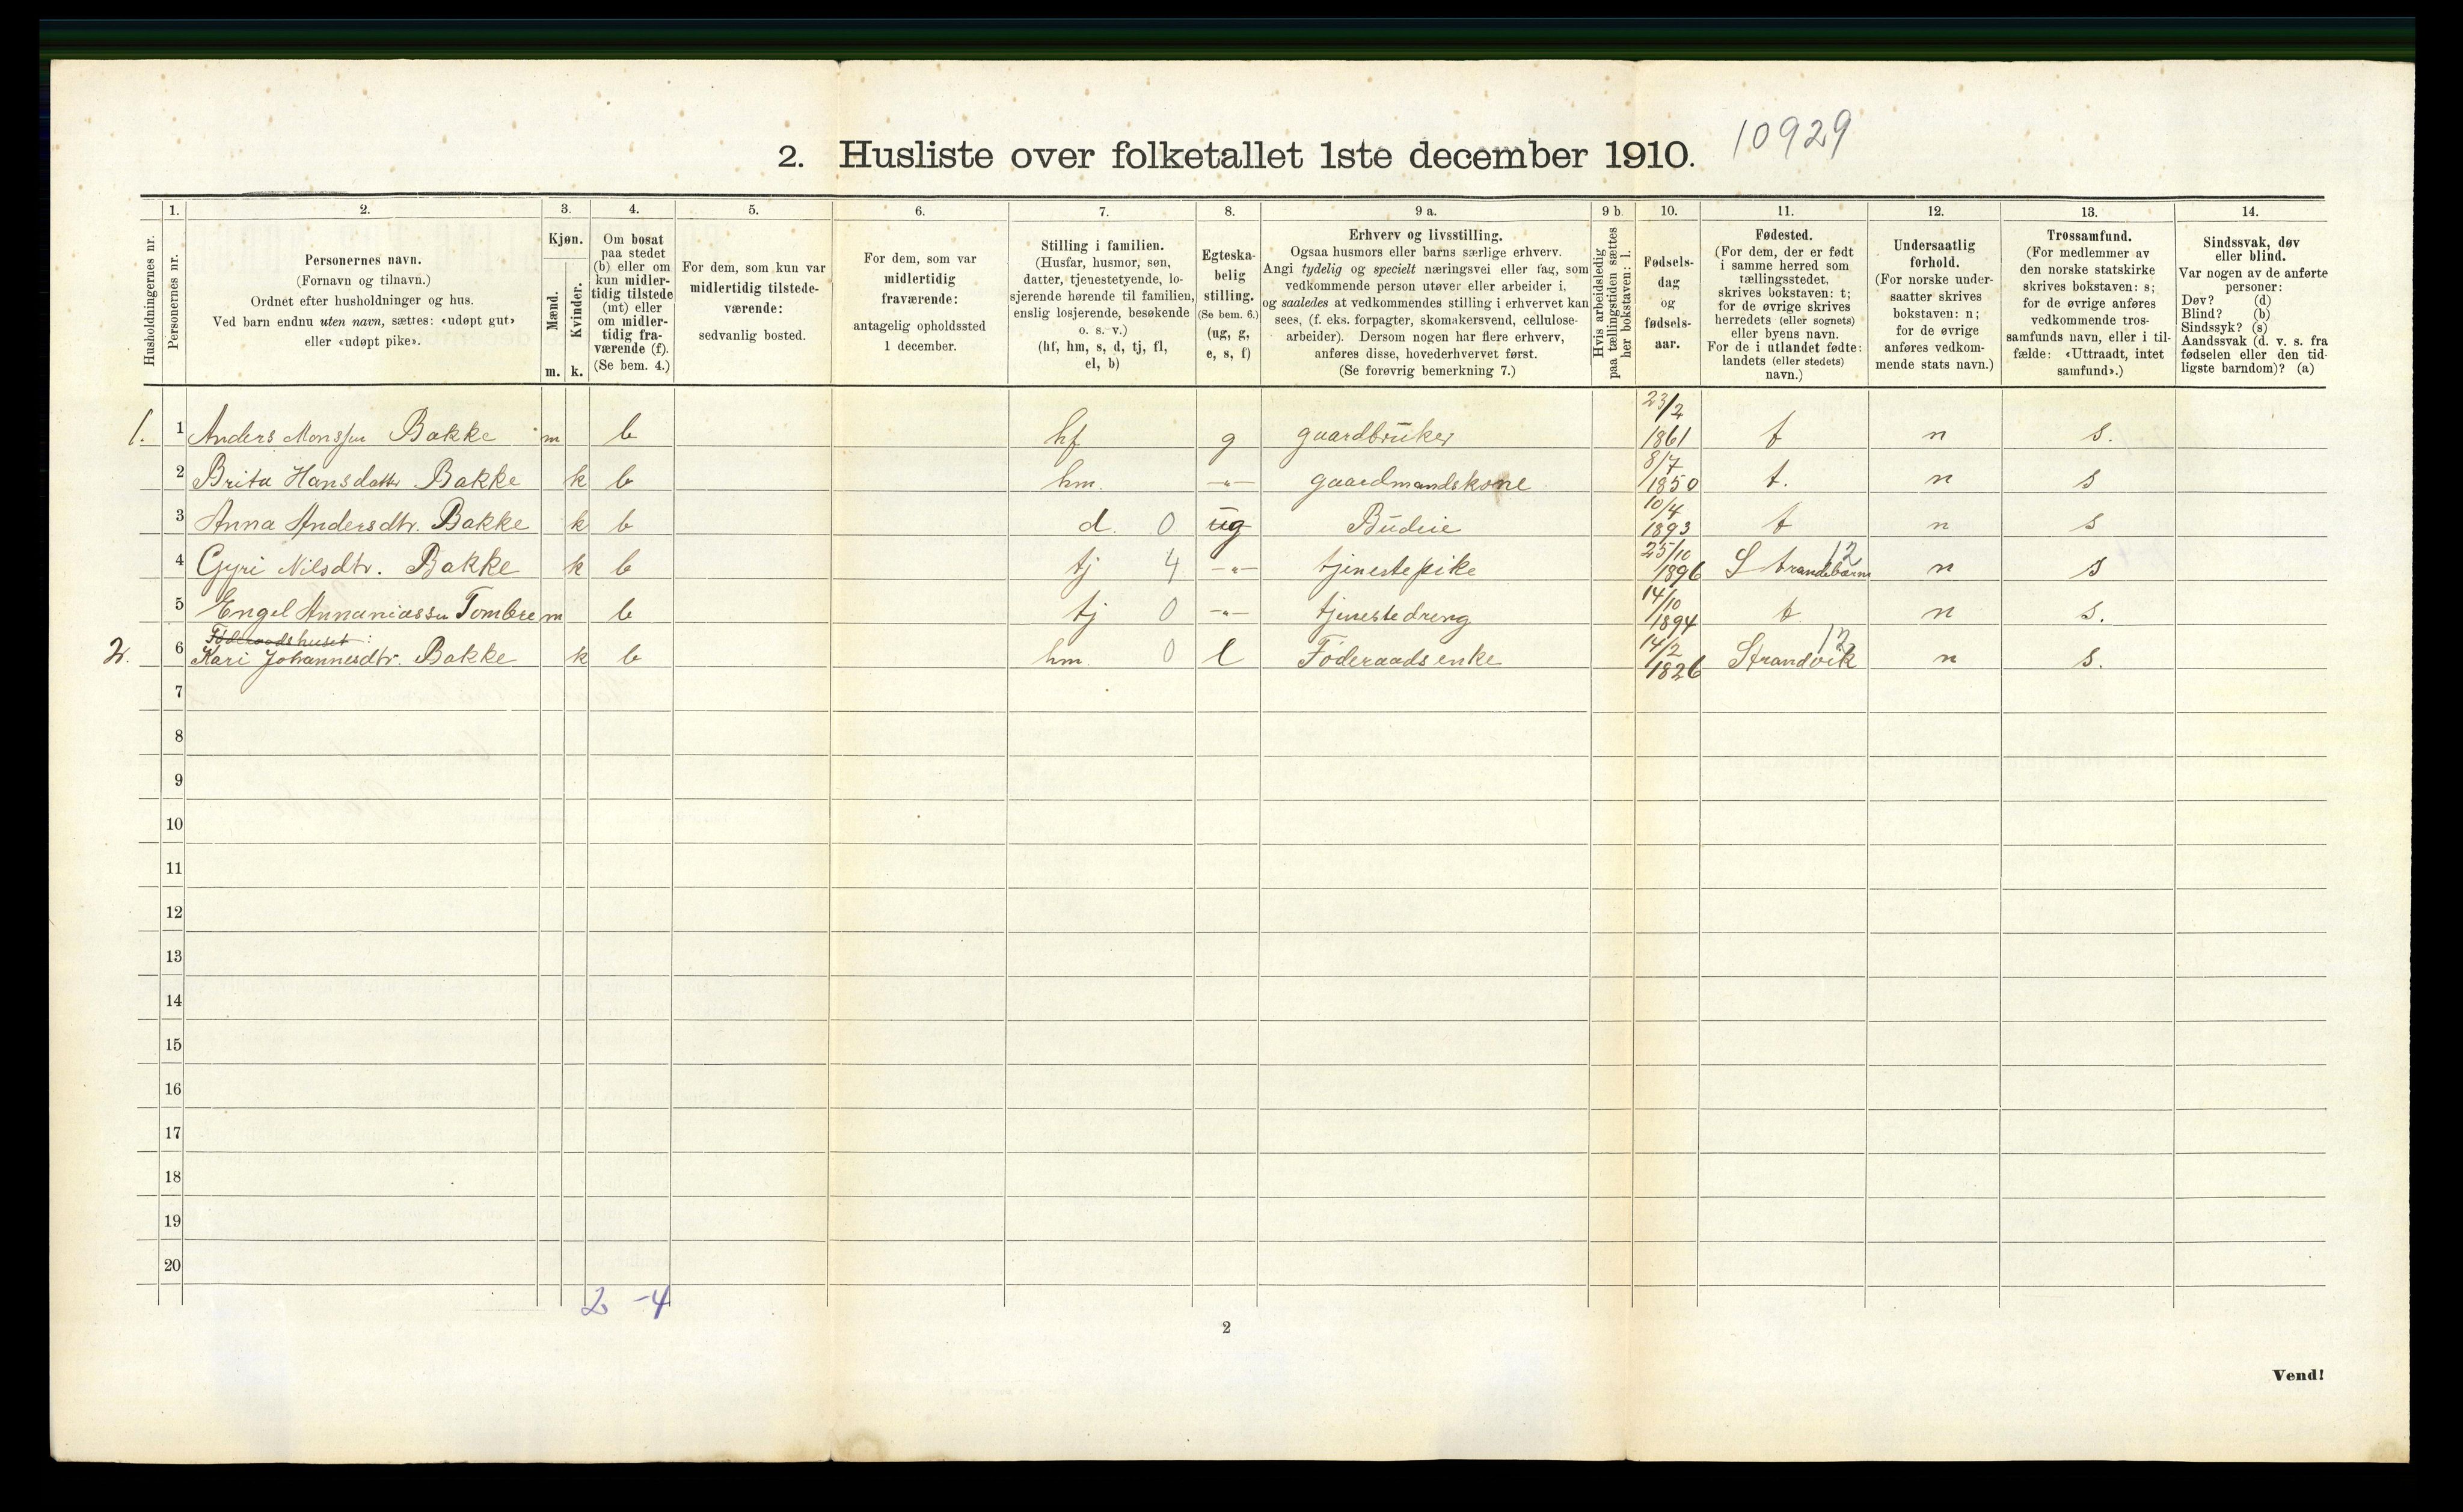 10929
2. Husliste over folketallet 1ste december 1910.
Husholdningernes nr.
1.
Personernes nr.
2.
Personernes navn.
(Fornavn og tilnavn.)
Ordnet efter husholdninger og hus.
Ved barn endnu uten navn, sættes: «udøpt gut»
eller «udøpt pike».
3.
Kjøn.
Mænd.
Kvinder.
m. k.
4.
Om bosat
paa stedet
(b) eller om
kun midler-
tidig tilstede
(mt) eller
om midler-
tidig fra-
værende (f).
(Se bem. 4.)
5.
For dem, som kun var
midlertidig tilstede-
værende:
sedvanlig bosted.
6.
For dem, som var
midlertidig
fraværende:
antagelig opholdssted
1 december.
7.
Stilling i familien.
(Husfar, husmor, søn,
datter, tjenestetyende, lo-
sjerende hørende til familien,
enslig losjerende, besøkende
o. s. v.)
(hf, hm, s, d, tj, fl,
el, b)
8.
Egteska-
belig
stilling.
(Se bem. 6.)
(ug, g,
e, s, f)
9 a.
Erhverv og livsstilling.
Ogsaa husmors eller barns særlige erhverv.
Angi tydelig og specielt næringsvei eller fag, som
vedkommende person utøver eller arbeider i,
og saaledes at vedkommendes stilling i erhvervet kan
sees, (f. eks. forpagter, skomakersvend, cellulose-
arbeider). Dersom nogen har flere erhverv,
anføres disse, hovederhvervet først.
(Se forøvrig bemerkning 7.)
9 b.
Hvis arbeidsledig
paa tællingstiden sættes
her bokstaven: l.
10.
Fødsels-
dag
og
fødsels-
aar.
11.
Fødested.
(For dem, der er født
i samme herred som
tællingsstedet,
skrives bokstaven: t;
for de øvrige skrives
herredets (eller sognets)
eller byens navn.
For de i utlandet fødte:
landets (eller stedets)
navn.)
12.
Undersaatlig
forhold.
(For norske under-
saatter skrives
bokstaven: n;
for de øvrige
anføres vedkom-
mende stats navn.)
13.
Trossamfund.
(For medlemmer av
den norske statskirke
skrives bokstaven: s;
for de øvrige anføres
vedkommende tros-
samfunds navn, eller i til-
fælde: «Uttraadt, intet
samfund».)
14.
Sindssvak, døv
eller blind.
Var nogen av de anførte
personer:
Døv? (d)
Blind? (b)
Sindssyk? (s)
Aandssvak (d. v. s. fra
fødselen eller den tid-
ligste barndom)? (a)
1. 1 Anders Monssen Bakke m b hf g gaardbruker 23/2 1861 t n s.
2 Brita Hansdattr Bakke k b hm. -"- gaardmandskone 8/7 1850 t. n s
3 Anna Andersdtr. Bakke k b d. 0 ug Budeie 10/4 1893 t n s
4 Gyri Nilsdtr. Bakke k b tj 4 -"- tjenestepike 25/10 1896 Strandebarm 12 n s
5 Engel Annaniassen Tombre m b tj 0 -"- tjenestedreng 14/10 1894 t n s.
Føderaadshuset:
2. 6 Kari Johannesdtr. Bakke k b hm. 0 e Føderaadsenke 14/2 1826 Strandvik 12 n s.
7
8
9
10
11
12
13
14
15
16
17
18
19
20
2 -4
2
Vend!